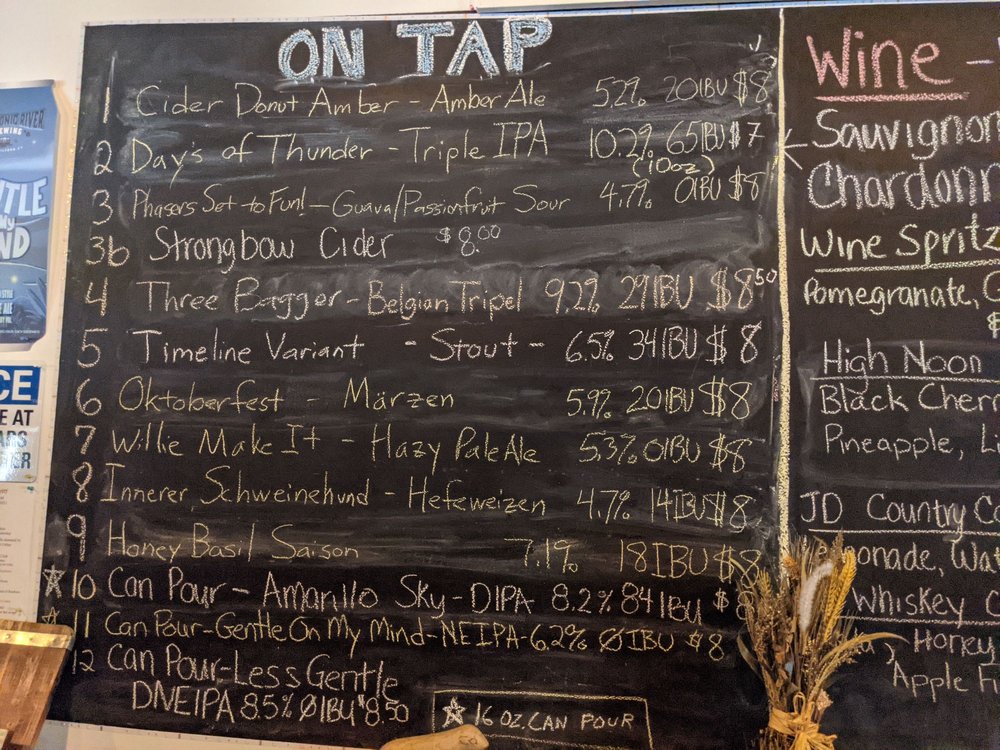 ON TAP
1 Cider Donut Amber - Amber Ale 5.2% 20IBU $8
2 Day's of Thunder - Triple IPA 10.2% 65IBU $7
(10oz)
3 Phasers Set to Fun! - Guava/Passionfruit Sour 4.7% 0IBU $8
3b Strongbow Cider $8.00
4 Three Bagger - Belgian Tripel 9.2% 29IBU $8.50
5 Timeline Variant - Stout - 6.5% 34IBU $8
6 Oktoberfest - Märzen 5.9% 20IBU $8
7 Willie Make It - Hazy Pale Ale 5.3% 0IBU $8
8 Innerer Schweinehund - Hefeweizen 4.7% 14IBU $8
9 Honey Basil Saison 7.1% 18IBU $8
☆ 10 Can Pour - Amarillo Sky - DIPA 8.2% 84IBU $8
☆ 11 Can Pour - Gentle On My Mind - NEIPA - 6.2% ØIBU $8
12 Can Pour - Less Gentle
DNEIPA 8.5% ØIBU $8.50
☆ 16 OZ. CAN POUR
Wine -
Sauvignon
Chardonn
Wine Spritz
Pomegranate,
$
High Noon
Black Cherr
Pineapple, Li
JD Country Co
Lemonade, Wat
Whiskey
Honey
Apple
RIVER
WING
NTLE
My
ND
CE
E AT